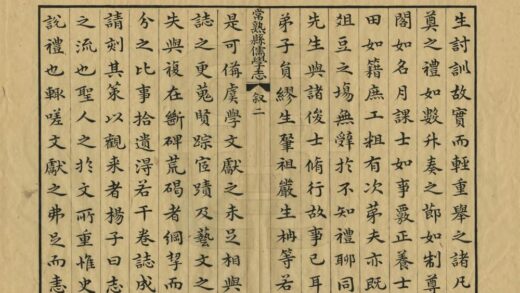 生討訓故實而輕重舉之諸凡
奠之禮如數升奏之節如制尊
閣如名月課士如事覈正養士
田如籍庶工粗有次苐夫亦既
俎豆之塲無辤於不知禮聊同
先生與諸俊士脩行故事已耳
弟子員繆生肇祖嚴生柟等若
常熟縣儒學志 叙二
是可備虞學文獻之未足相與
誌之更蒐賢踪宦蹟及藝文之
失與複在斷碑荒碣者綱挈而
分之比事拾遺淂若干卷誌成
請刻其策以觀来者楊子曰志
之流也聖人之扵文所重惟史
說禮也輙嗟文獻之弗足而